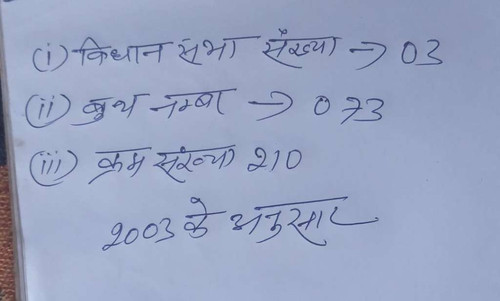 (i) विधान सभा संख्या → 03
(ii) बुथ नम्बर → 073
(iii) क्रम संख्या 210
2003 के अनुसार